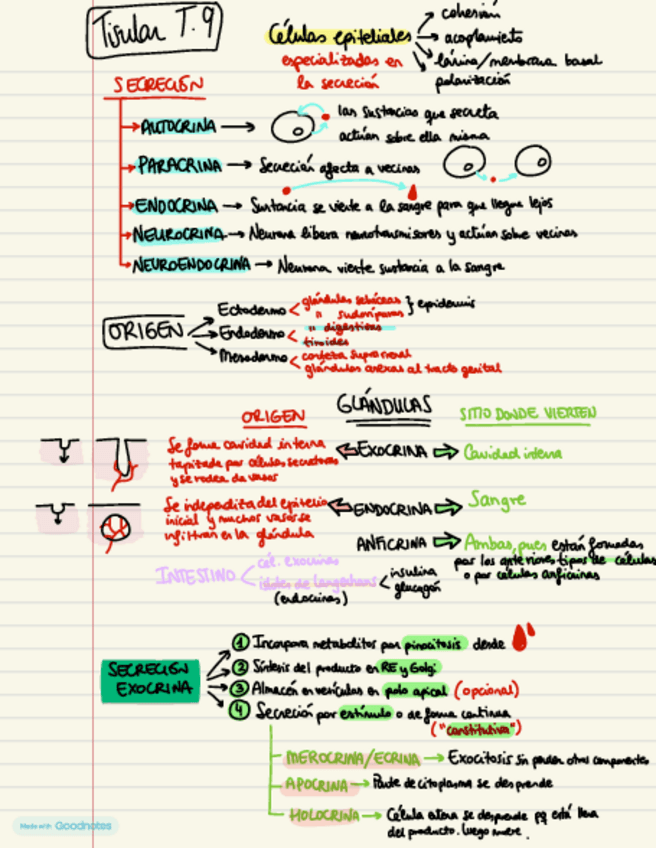 Tisular T.9
Células epiteliales
cohesión
acoplamiento
lámina/membrana basal
polarización
especializadas en
la secreción
SECRECIÓN
AUTOCRINA → las sustancias que secreta
actúan sobre ella misma
PARACRINA → Secreción afecta a vecinas
ENDOCRINA → Sustancia se vierte a la sangre para que llegue lejos
NEUROCRINA → Neurona libera neurotransmisores y actúan sobre vecinas
NEUROENDOCRINA → Neurona vierte sustancia a la sangre
ORIGEN
Ectodermo < glándulas sebáceas
" sudoríparas } epidermis
Endodermo < " digestivas
tiroides
Mesodermo < corteza suprarrenal
glándulas anexas al tracto genital
GLÁNDULAS
ORIGEN
SITIO DONDE VIERTEN
Se forma cavidad interna
tapizada por células secretoras
y se rodea de vasos
EXOCRINA
Cavidad interna
Se independiza del epitelio
inicial y muchos vasos se
infiltran en la glándula
ENDOCRINA
Sangre
ANFICRINA
Ambas, pues están formadas
por los anteriores tipos de células
o por células anficrinas
INTESTINO
cél. exocrinas
islotes de Langerhans
(endocrinas)
insulina
glucagón
SECRECIÓN
EXOCRINA
1 Incorpora metabolitos por pinocitosis desde
2 Síntesis del producto en RE y Golgi
3 Almacén en vesículas en polo apical (opcional)
4 Secreción por estímulo o de forma continua
("constitutiva")
MEROCRINA/ECRINA → Exocitosis sin perder otros componentes
APOCRINA → Parte de citoplasma se desprende
HOLOCRINA → Célula entera se desprende pq está llena
del producto. Luego muere.
Made with Goodnotes